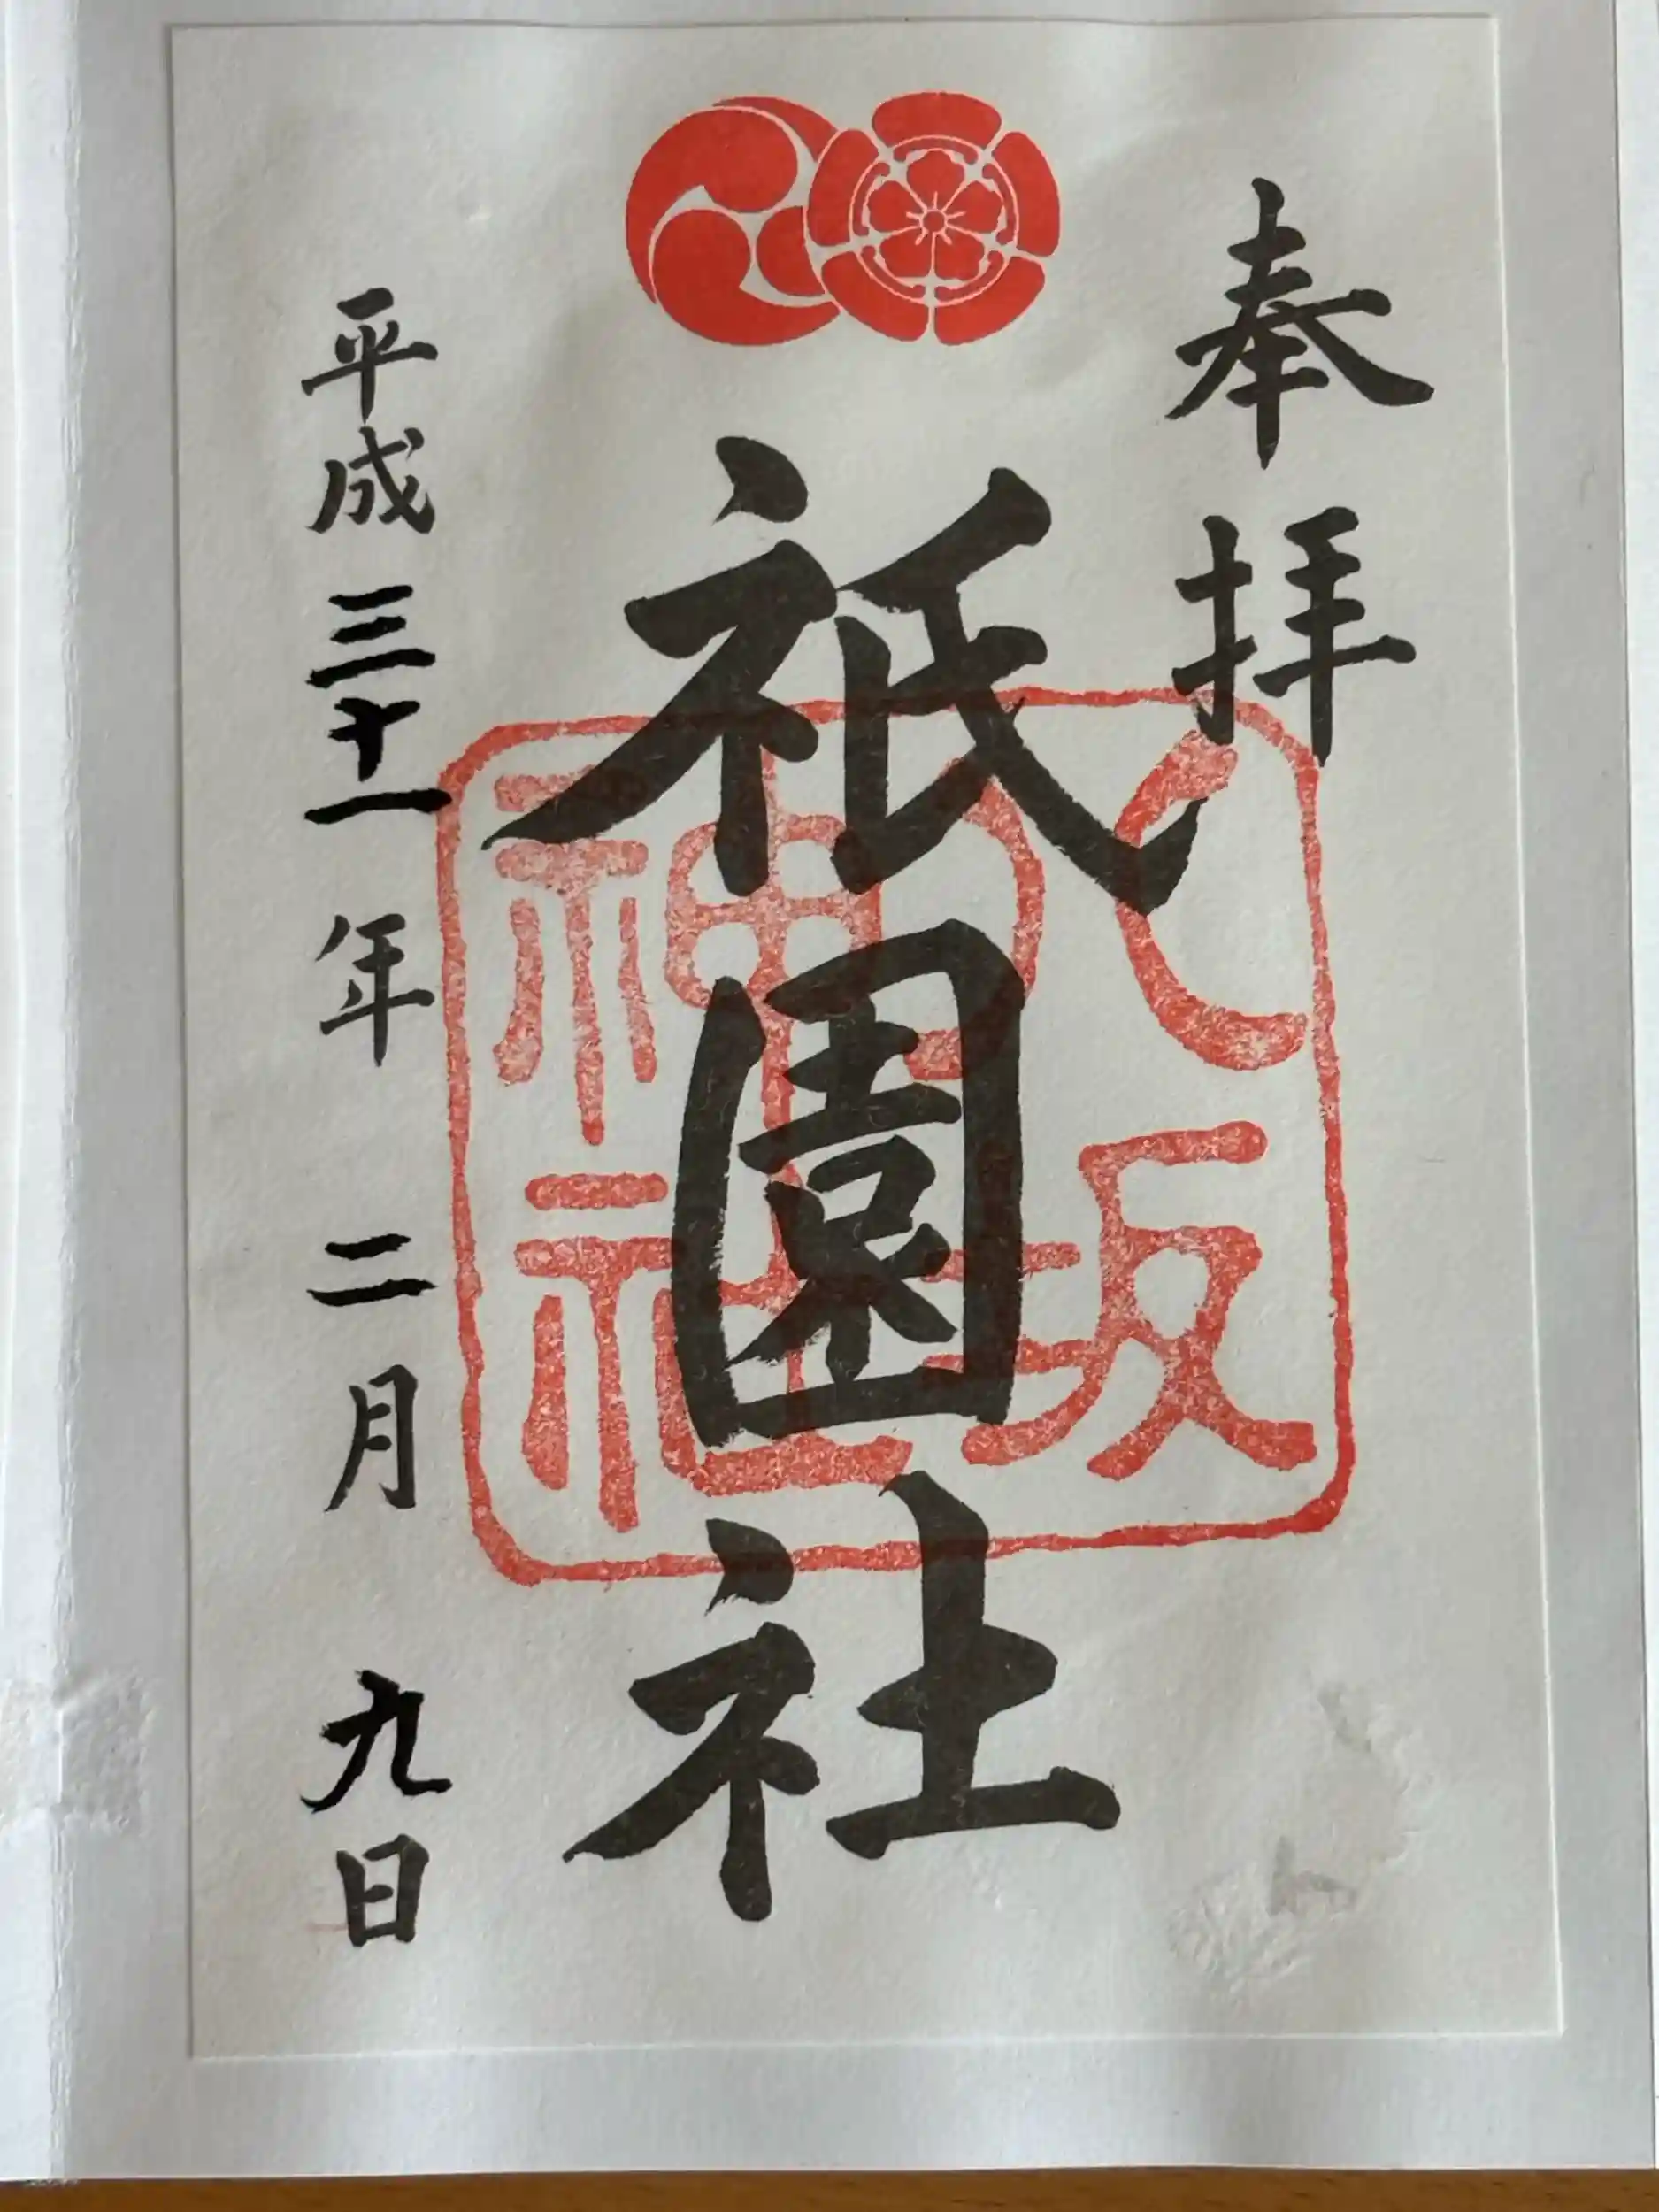 奉拝
祇園社
八坂
神社
平成三十一年二月九日